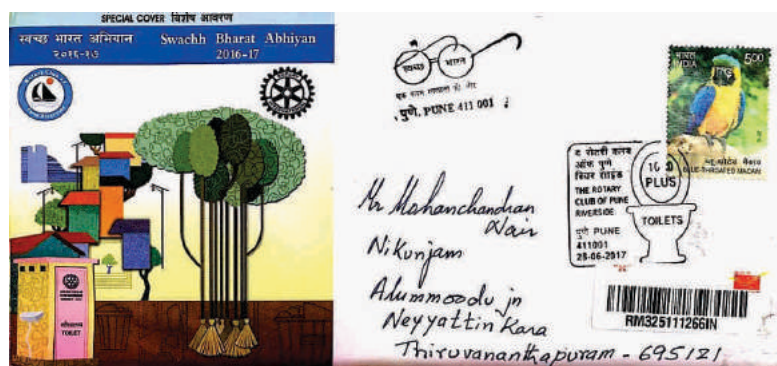 SPECIAL COVER विशेष आवरण
स्वच्छ भारत अभियान Swachh Bharat Abhiyan
२०१६-१७ 2016-17
TOILET
स्वच्छ भारत
एक कदम स्वच्छता की ओर
पुणे, PUNE 411 001
भारत
INDIA
5.00
BLUE-THROATED MACAW
द रोटरी क्लब
ऑफ पुणे
रिवर साइड
THE ROTARY
CLUB OF PUNE
RIVERSIDE
पुणे PUNE
411001
28-06-2017
PLUS
TOILETS
Mr Mohanchandran
Nair
Nikunjam
Alummoodu jn
Neyyattinkara
Thiruvananthapuram - 695121
RM325111266IN